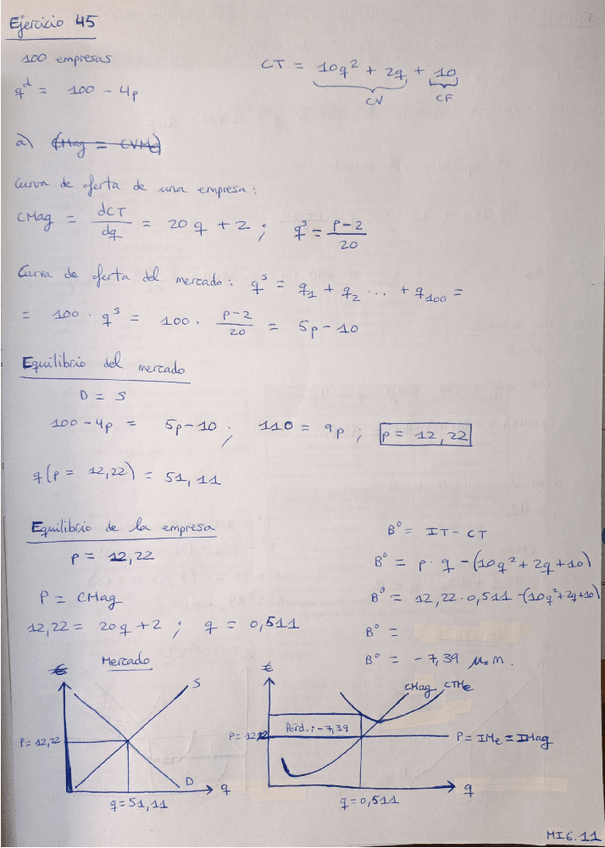 Ejercicio 45
100 empresas
CT = 10q² + 2q + 10
CV CF
qᵈ = 100 - 4p
a) (CMag = CVMe)
Curva de oferta de una empresa:
CMag = dCT/dq = 20q + 2 ; qˢ = p-2/20
Curva de oferta del mercado: qˢ = q₁ + q₂ ... + q₁₀₀ =
= 100 · qˢ = 100 · p-2/20 = 5p - 10
Equilibrio del mercado
D = S
100 - 4p = 5p - 10 ; 110 = 9p ; p = 12,22
q(p = 12,22) = 51,11
Equilibrio de la empresa
p = 12,22
P = CMag
12,22 = 20q + 2 ; q = 0,511
Bº = IT - CT
Bº = p · q - (10q² + 2q + 10)
Bº = 12,22 · 0,511 - (10q² + 2q + 10)
Bº =
Bº = -7,39 u.m.
Mercado
€
S
P = 12,22
D
q
q = 51,11
€
CMag CTMe
Pérd.: -7,39
P = 12,22
P = IMe = IMag
q
q = 0,511
MI6.11